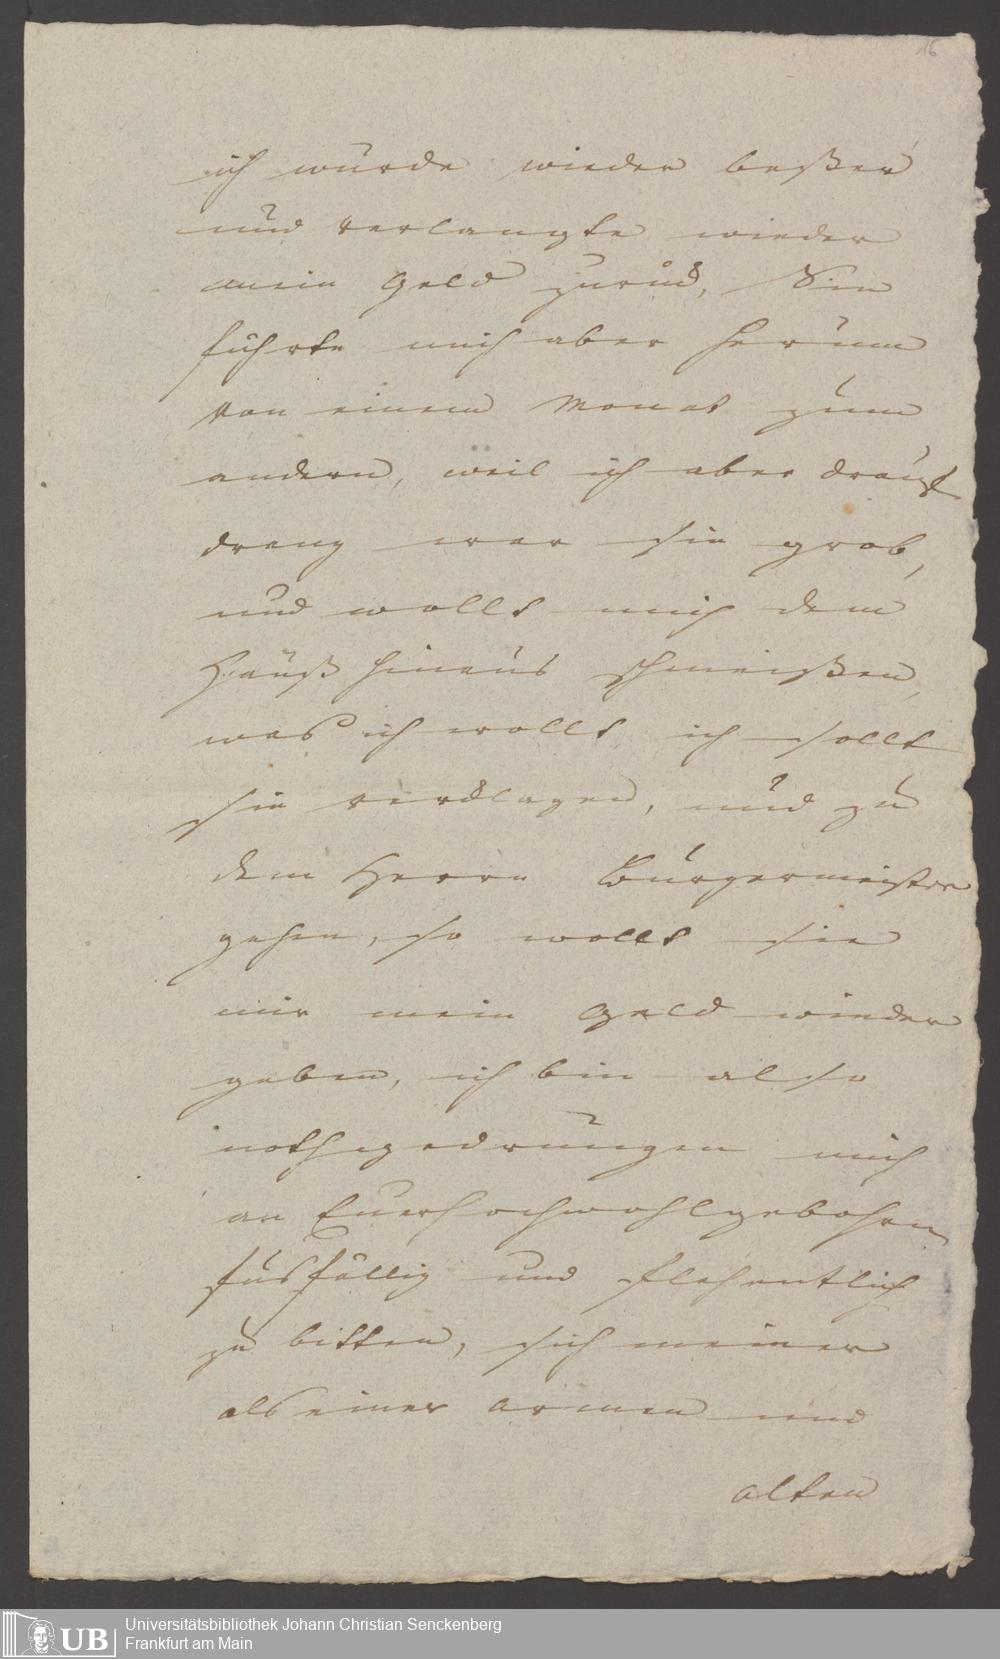 16
ich wurde wieder beßer
und verlangte wieder
mein Geld zurück, Sie
führte mich aber herum
von einem Monat zum
andern, weil ich aber drauf
drang war sie grob,
und wollt mich dem
Hauß hinaus schmeißen,
was ich wollt, ich sollt
sie verklagen, und zu
dem Herrn Burgermeister
gehen, so wollt sie
mir mein Geld wieder
geben, ich bin also
nothgedrungen mich
an Euerhochwohlgebohrn
fusfällig und flehentlich
zu bitten, sich meiner
als einer armen und
alten
Universitätsbibliothek Johann Christian Senckenberg
UB Frankfurt am Main